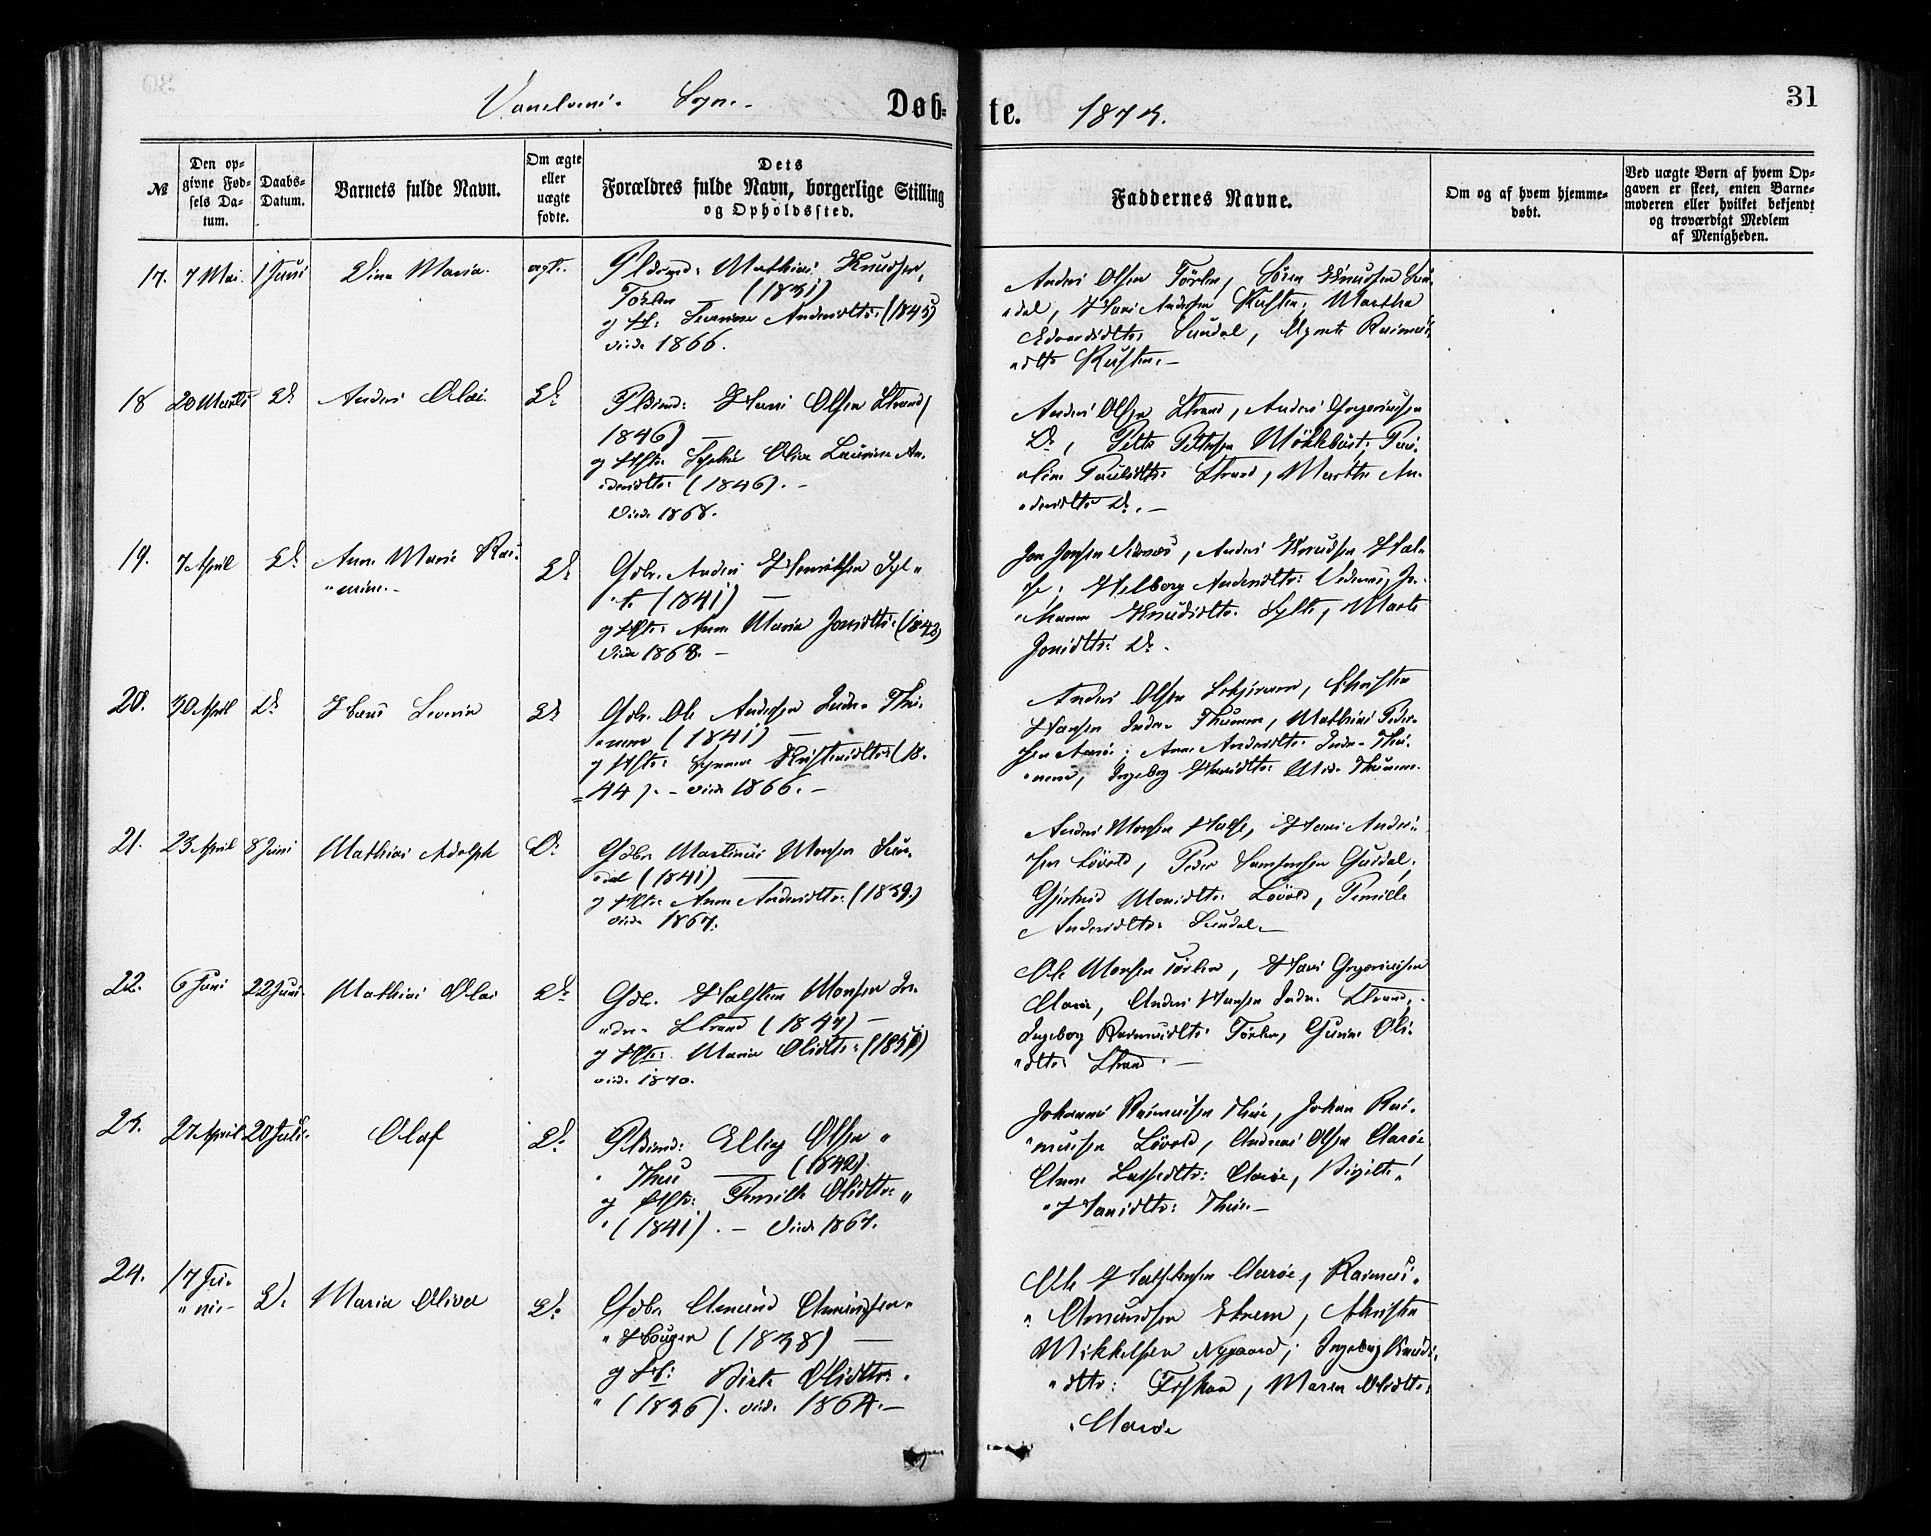 Vanelvens Sogn.
Døb-
te. 1873.
31
№
Den op-
givne Fød-
sels Da-
tum.
Daabs-
Datum.
Barnets fulde Navn.
Om ægte
eller
uægte
fødte.
Dets
Forældres fulde Navn, borgerlige Stilling
og Opholdssted.
Faddernes Navne.
Om og af hvem hjemme-
døbt.
Ved uægte Børn af hvem Op-
gaven er skeet, enten Barne-
moderen eller hvilket bekjendt
og troværdigt Medlem
af Menigheden.
17. 7 Mai 1 Juni Maria ægte.
Mathias Knudsen,
(1831)
og Andersdtr: (1845)
viede 1866.
Anders Olsen Knudsen Sun-
dal, Hans Andersen Rusten, Martha
Sundal, Rasmus-
dtr Rusten.
18 20 Marts Do Anders Olai Do
Hans Olsen Strand (
1846) —
og Hstr. Sophie Oliva Laurine An-
dersdtr: (1846).
Viede 1868.
Anders Olsen Strand, Anders Gregoriussen
Do, Peter Pettersen Mökkebust,
Paulsdtr: Strand, Marthe An-
dersdtr Do.
19. 7 April Do Anne Marie Ras-
mine. Do
Gdbr. Anders Henriksen Syl-
te (1841) —
og Hstr: Anne Maria Jonsdtr: (1842)
Viede 1868.
Jon Jonsen, Anders Knudsen Hal-
se, Andersdtr: Jo-
hanne Knudsdtr. Sylte, Marte
Jonsdtr: Do.
20. 30 April Do Hans Severin Do
Gdbr. Ole Andersen Indre Thu-
nem (1841) —
og Hstr: Kristensdtr: (18-
44). viede 1866.
Anders Olsen, Christen
Hansen Indre Thunem, Mathias Peder-
sen Aarøe, Anne Andersdtr: Indre Thu-
nem, Ingeborg Hansdtr: Thunem.
21. 23 April 8 Juni Mathias Adolph Do
Gdbr Martinus Monsen Sun-
dal (1841) —
og Hstr: Anne Andersdtr: (1839)
viede 1867.
Anders Monsen Halse, Hans Anders-
sen Lövold, Peder Samsonsen Gusdal,
Gjertrud Monsdtr: Lövold, Pernille
Andersdtr: Sundal.
22. 6 Juni 22 Juni Mathias Olai Do
Gdbr. Halsten Monsen In-
dre Strand (1847) —
og Hstr: Maria Olsdtr: (1851)
viede 1870.
Ole Monsen, Hans Gregoriussen
Aarøe, Anders Hansen Indre Strand,
Ingeborg Rasmusdtr:, Gurine Ols-
dtr: Strand.
23. 27 April 20 Juli. Olaf Do
Elling Olsen
Thue — (1842)
og Hstr: Pernille Olsdtr:
(1841). — Viede 1867.
Johannes Rasmussen Thue, Johan Ras-
mussen Lövold, Andreas Olsen Aarøe
Anne Lassedtr: Aarøe, Birgitte
Hansdtr: Thue.
24. 17 Ju-
ni Do Maria Oliva Do
Gdbr Amund Amundsen
Hougen (1838) —
og Berte Olsdtr:
(1836). viede 1864.
Ole Halstensen Aarøe, Rasmus
Amundsen Ekrem, Christen
Mikkelsen Nygaard, Ingeborg Knuds-
dtr:, Maren Olsdtr:
Aarøe